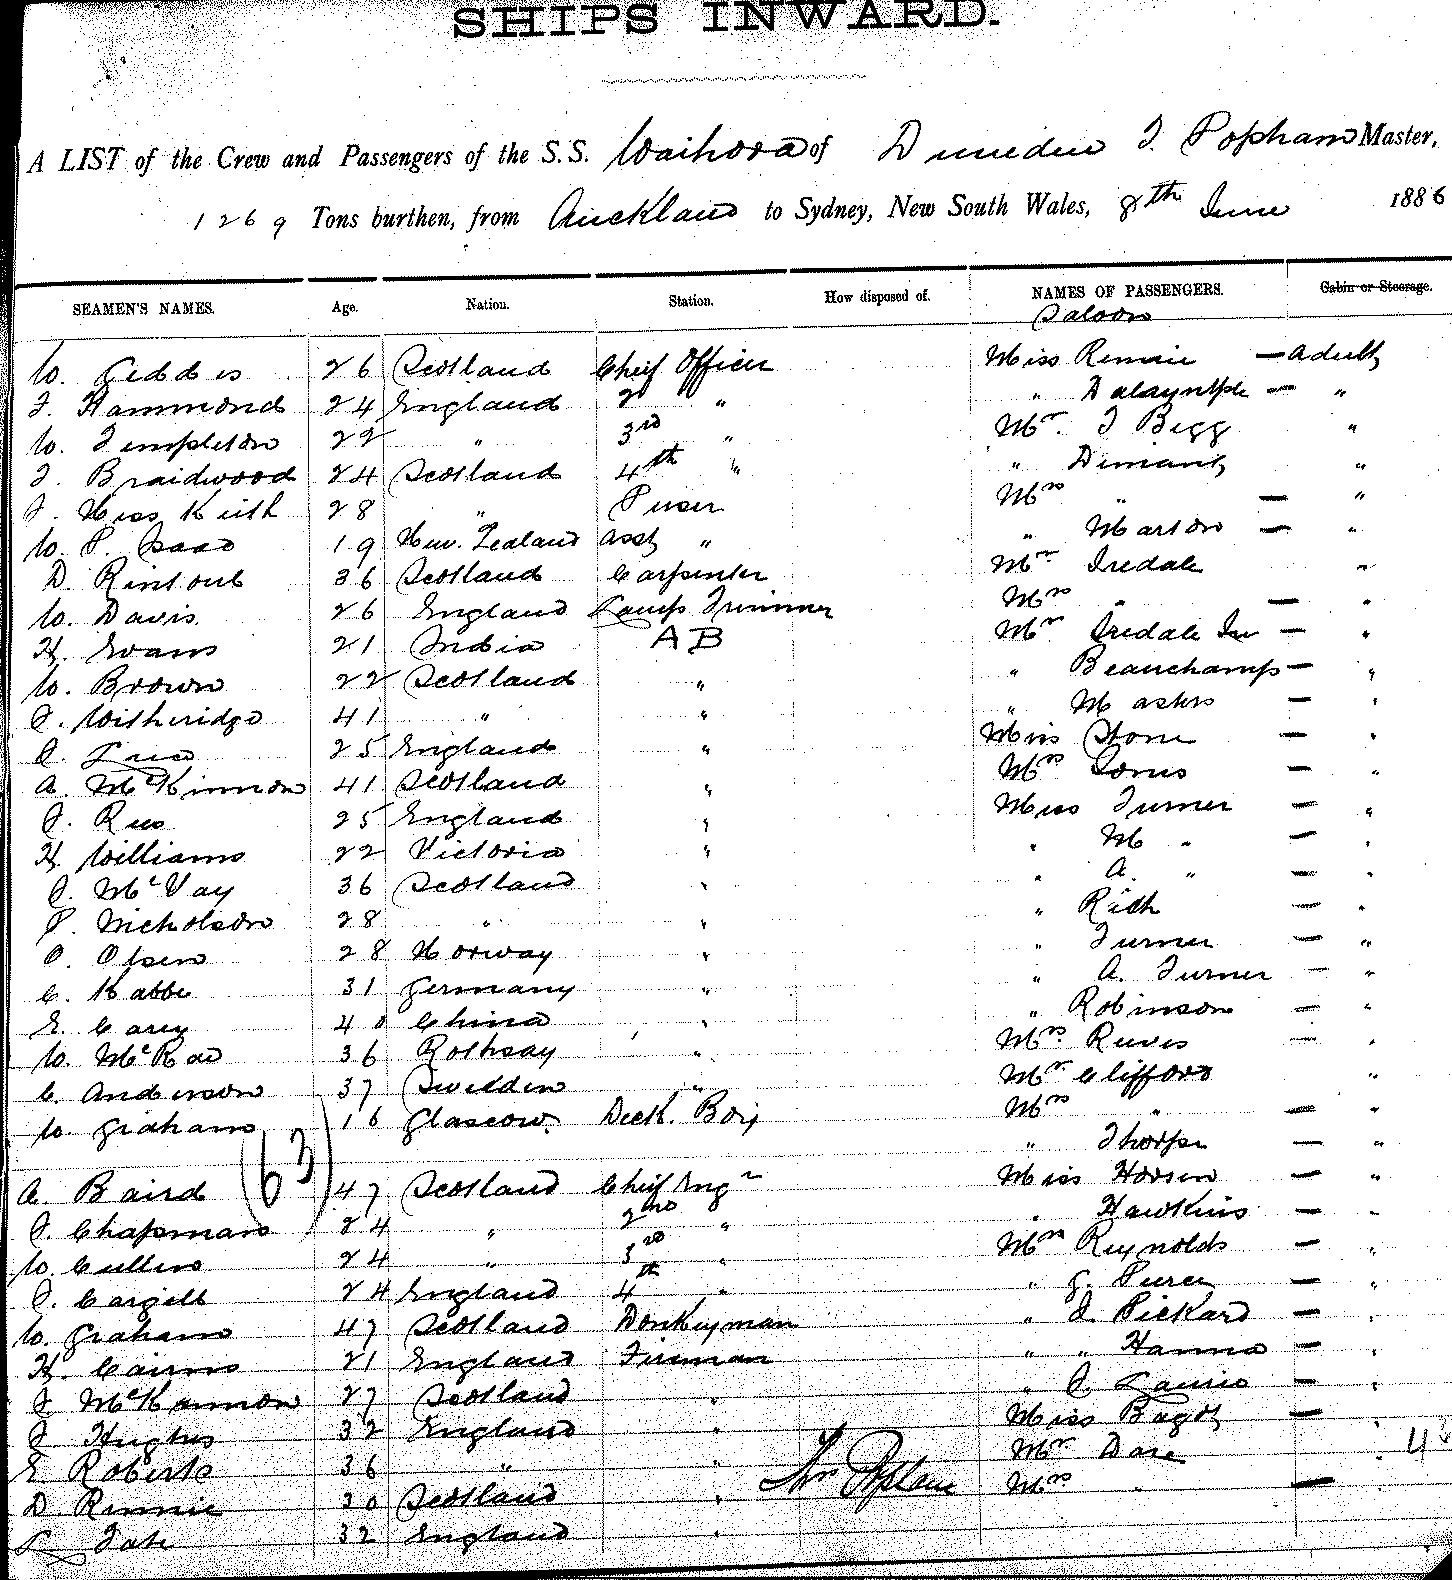 SHIPS INWARD.
A LIST of the Crew and Passengers of the S.S. Waihora of Dunedin T. Popham Master,
1269 Tons burthen, from Auckland to Sydney, New South Wales, 8th June 1886
SEAMEN'S NAMES. Age. Nation. Station. How disposed of. NAMES OF PASSENGERS. Cabin or Steerage.
Saloon
W. Geddes 26 Scotland Chief Officer Miss Rennie — Adult
Hammond 24 England 2 " " — "
W. Templeton 22 " 3rd " Mr. Begg "
Braidwood 24 Scotland 4th " " Dimant "
Keith 28 " Purser Mrs " — "
W. P. Isaac 19 New Zealand Asst " " Marton — "
D. Rintoul 36 Scotland Carpenter Mr Iredale "
W. Davis 26 England Lamp Trimmer Mrs " — "
H. Evans 21 India AB Mr Iredale Jnr — "
W. Brown 22 Scotland " " Beauchamp — "
J. Witheridge 41 " " " Masters — "
J. 25 England " Miss Stone — "
A. McKinnon 41 Scotland " Mrs — "
J. Rees 25 England " Miss Turner — "
H. Williams 22 Victoria " " M " — "
J. McVay 36 Scotland " " A. " — "
P. Nicholson 28 " " " Rich — "
O. Olsen 28 Norway " " Turner — "
C. Kabbe 31 Germany " " A. Turner — "
E. Carey 40 China " " Robinson — "
W. McRae 36 Rothsay " Mrs. Reeves — "
C. Anderson 37 Swedden " Mr. Clifford "
W. Graham 16 Glascow. Deck. Boy Mrs " — "
" Thorpe — "
(63)
A. Baird 47 Scotland Chief Engr Miss — "
J. Chapman 24 " 2nd " " Hawkins — "
W. Cullen 24 " 3rd " Mrs Reynolds — "
J. Cargill 24 England 4th " " G. Pierce — "
W. Graham 47 Scotland Donkeyman " Pickard — "
H. Cairns 21 England Fireman " " Hanna — "
J. McKannon 27 Scotland " " J Laurie — "
J Hughes 32 England " Miss Bagot — "
E Roberts 36 " " Mr. Dare "
D. Rennie 30 Scotland " Mrs " —
Tate 32 England "